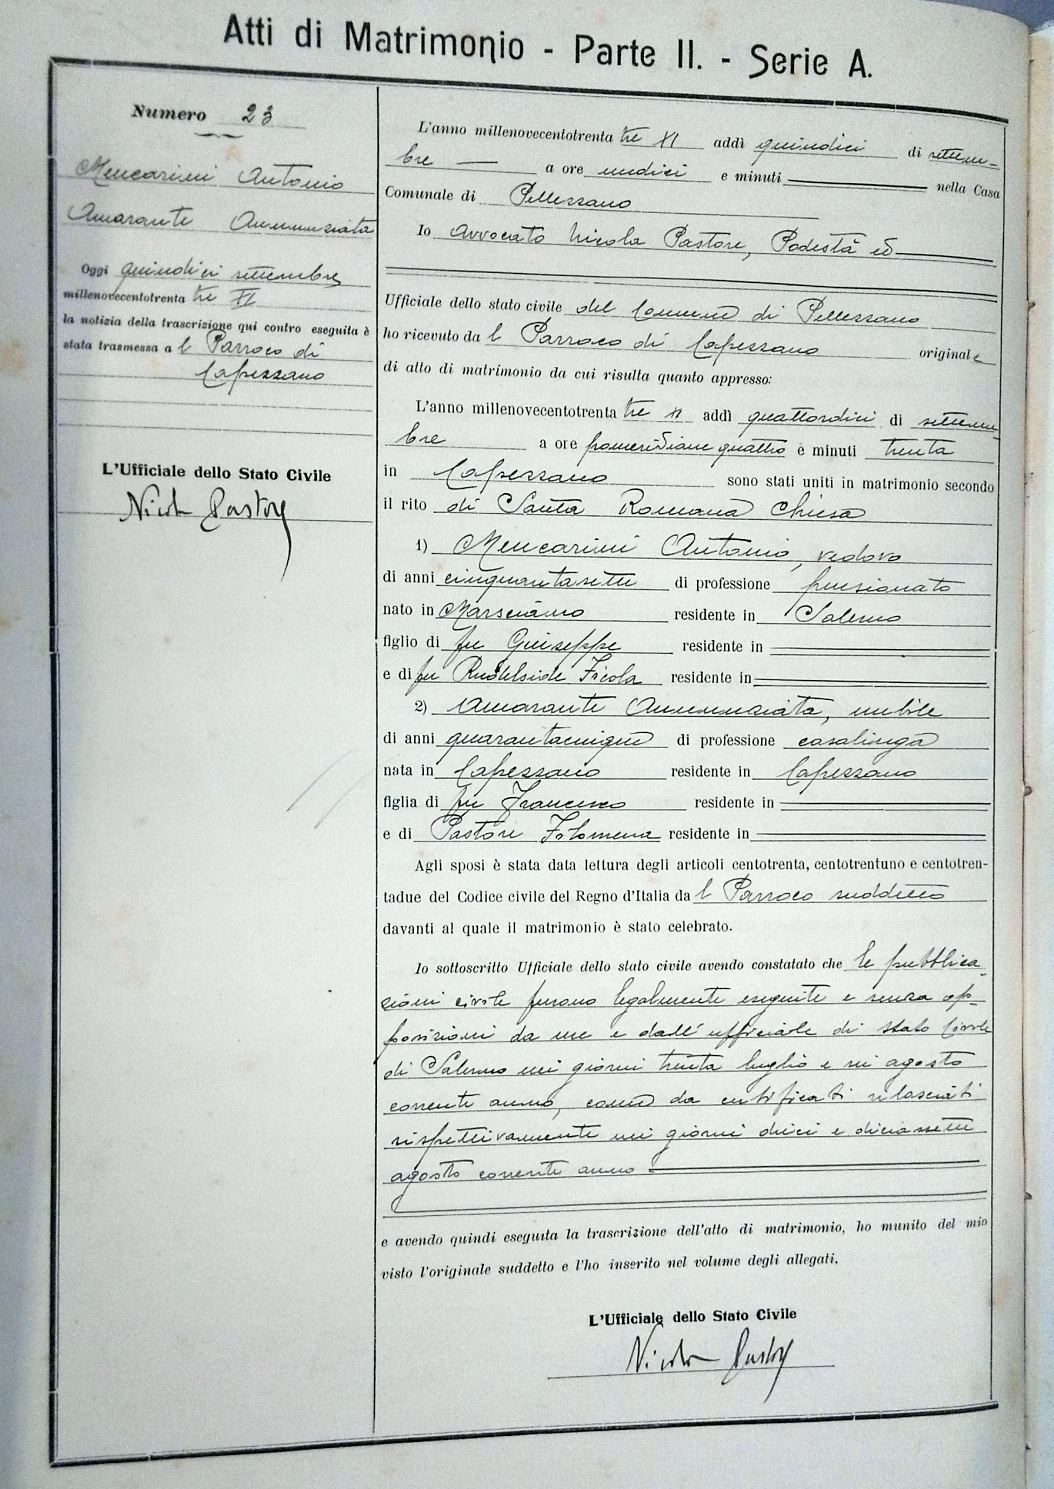 Atti di Matrimonio - Parte II. - Serie A.
Numero 23
Mencarini Antonio
Amarante Annunziata
Oggi quindici settembre
millenovecentotrenta tre XI
la notizia della trascrizione qui contro eseguita è
stata trasmessa a l Parroco di
Capezzano
L'Ufficiale dello Stato Civile
Nicola Pastore
L'anno millenovecentotrenta tre XI addì quindici di settem-
bre a ore undici e minuti nella Casa
Comunale di Pellezzano
Io Avvocato Nicola Pastore, Podestà ed
Ufficiale dello stato civile del Comune di Pellezzano
ho ricevuto da l Parroco di Capezzano originale
di atto di matrimonio da cui risulta quanto appresso:
L'anno millenovecentotrenta tre XI addì quattordici di settem
bre a ore pomeridiane quattro e minuti trenta
in Capezzano sono stati uniti in matrimonio secondo
il rito di Santa Romana Chiesa
1) Mencarini Antonio, vedovo
di anni cinquantasette di professione pensionato
nato in Marsciano residente in Salerno
figlio di fu Giuseppe residente in
e di fu residente in
2) Amarante Annunziata, nubile
di anni quarantacinque di professione casalinga
nata in Capezzano residente in Capezzano
figlia di fu Francesco residente in
e di Pastore Filomena residente in
Agli sposi è stata data lettura degli articoli centotrenta, centotrentuno e centotren-
tadue del Codice civile del Regno d'Italia da l Parroco suddetto
davanti al quale il matrimonio è stato celebrato.
Io sottoscritto Ufficiale dello stato civile avendo constatato che le pubblica-
zioni civili furono legalmente eseguite e senza op-
posizioni da me e dall'ufficiale di stato civile
di Salerno nei giorni trenta luglio e sei agosto
corrente anno, come da certificati rilasciati
rispettivamente nei giorni dieci e diciassette
agosto corrente anno
e avendo quindi eseguita la trascrizione dell'atto di matrimonio, ho munito del mio
visto l'originale suddetto e l'ho inserito nel volume degli allegati.
L'Ufficiale dello Stato Civile
Nicola Pastore